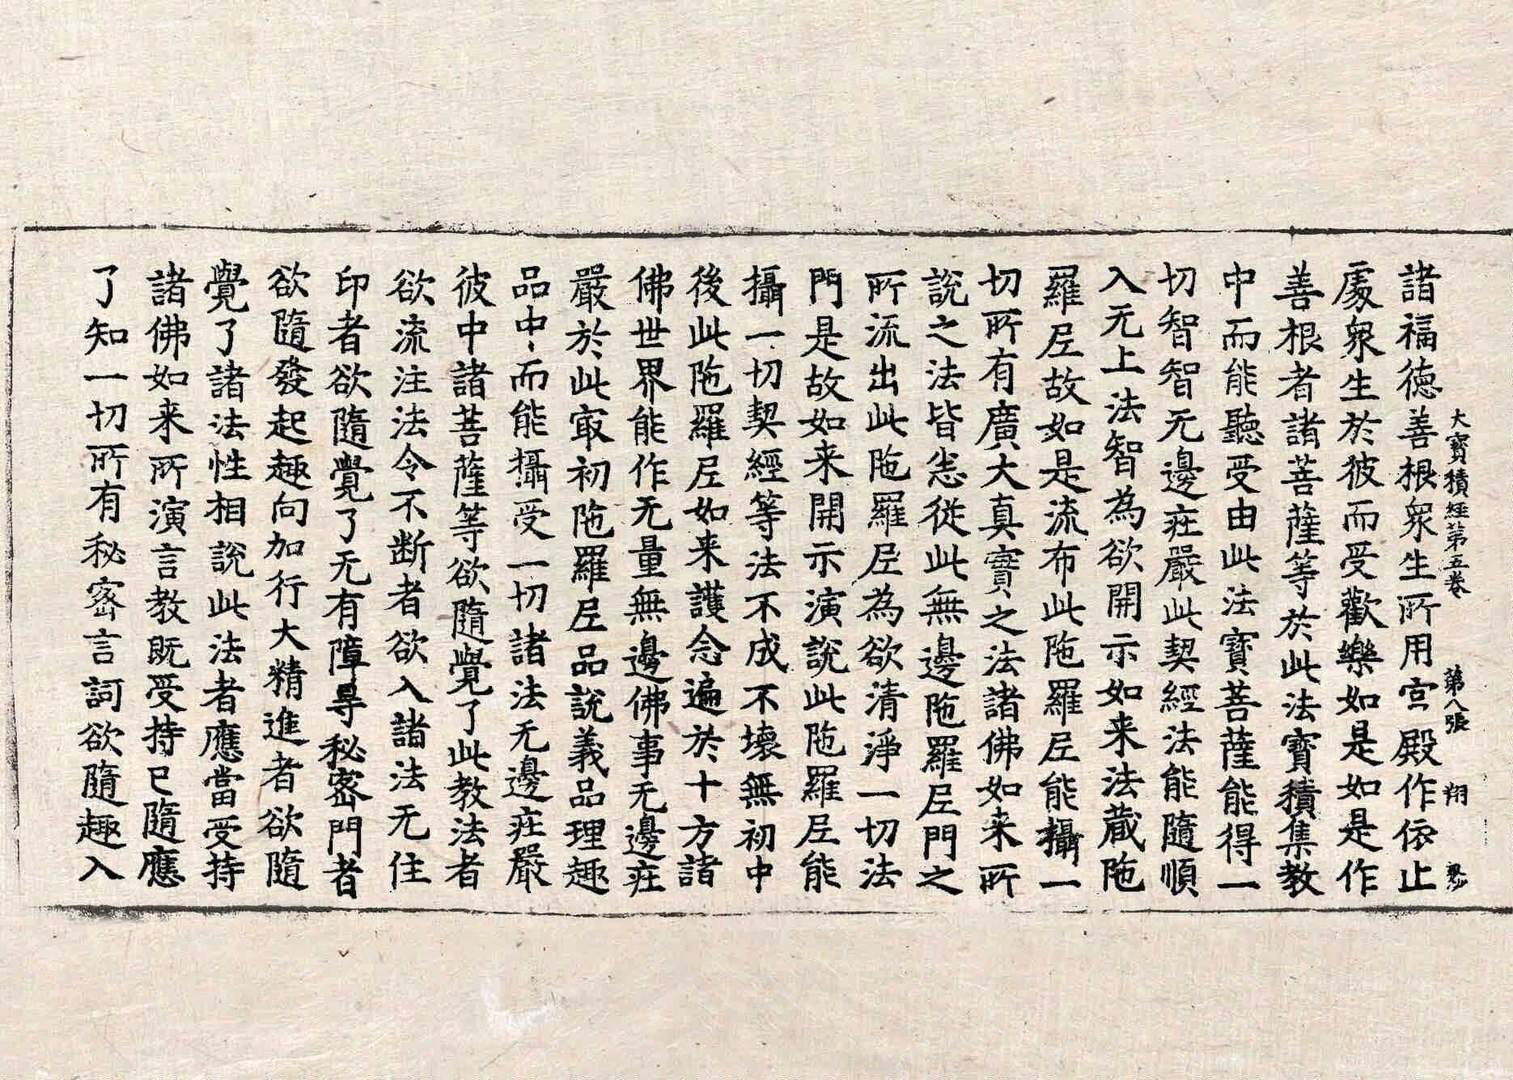 大寶積経第五卷 第八張 翔
諸福德善根衆生所用宫殿作依止
處衆生於彼而受歡樂如是如是作
善根者諸菩薩等於此法寶積集教
中而能聽受由此法寶菩薩能得一
切智智无邊莊嚴此契經法能隨順
入无上法智為欲開示如来法藏陁
羅尼故如是流布此陁羅尼能攝一
切所有廣大真實之法諸佛如来所
說之法皆悉從此無邊陁羅尼門之
所流出此陁羅尼為欲清淨一切法
門是故如来開示演說此陁羅尼能
攝一切契經等法不成不壞無初中
後此陁羅尼如来護念遍於十方諸
佛世界能作无量無邊佛事无邊莊
嚴於此㝡初陁羅尼品說義品理趣
品中而能攝受一切諸法无邊莊嚴
彼中諸菩薩等欲隨覺了此教法者
欲流注法令不断者欲入諸法无住
印者欲隨覺了无有障㝵秘密門者
欲隨發起趣向加行大精進者欲隨
覺了諸法性相說此法者應當受持
諸佛如来所演言教既受持已隨應
了知一切所有秘密言詞欲隨趣入